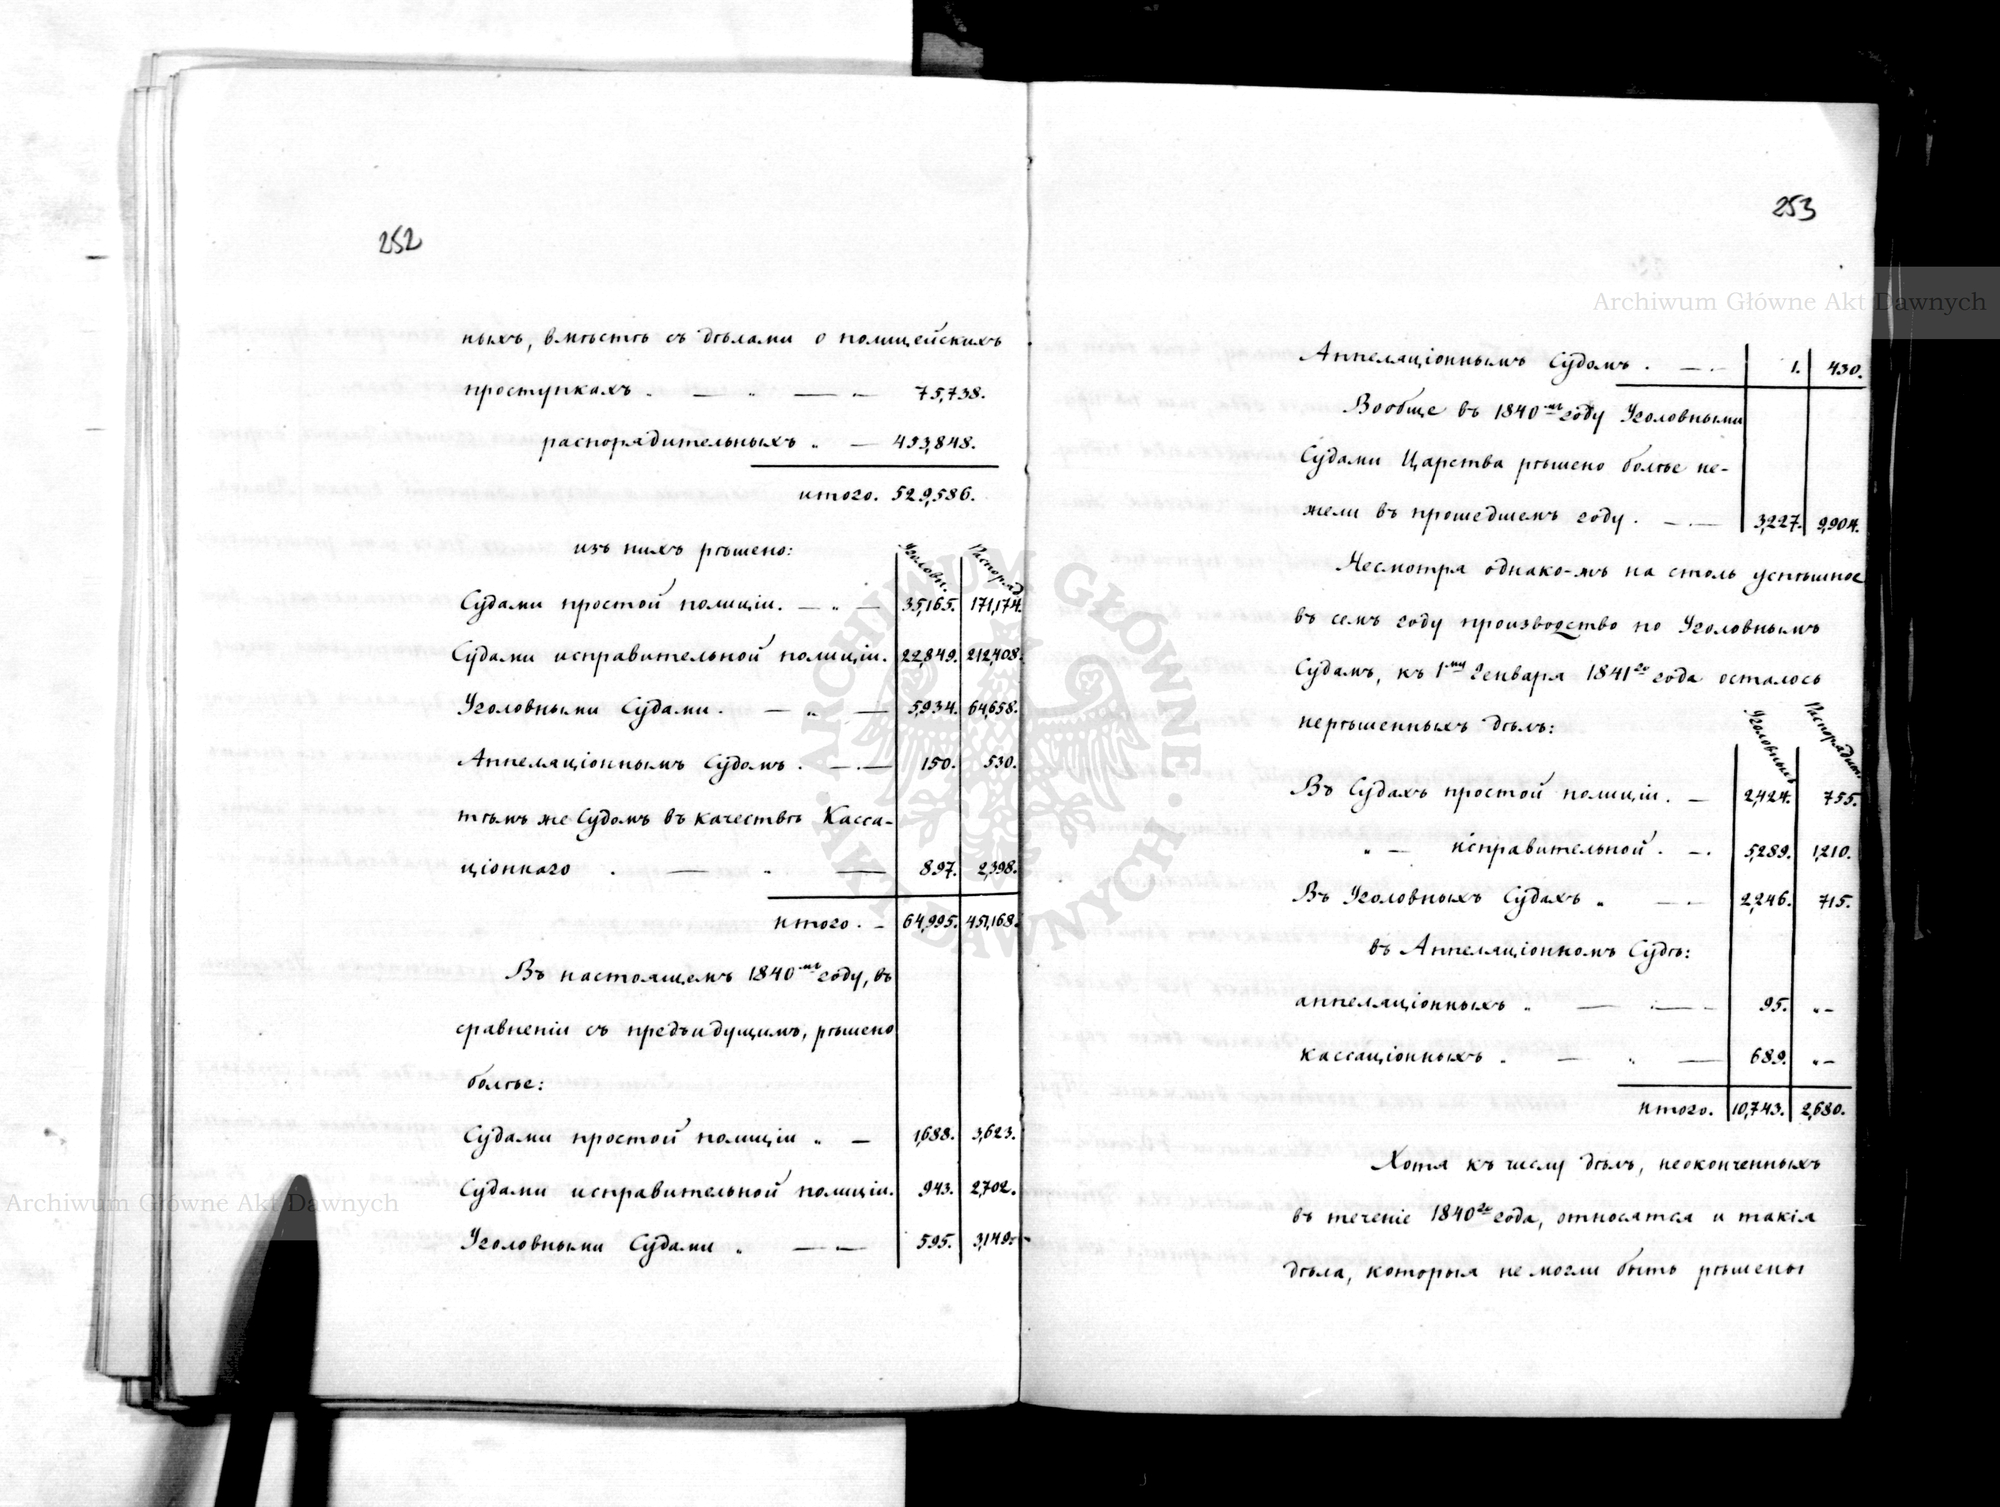 252
ныхъ, вмѣстѣ съ дѣлами о полицейскихъ
проступкахъ . — „ — — 75,738.
распорядительныхъ „ — 453,848.
итого. 529,586.
изъ нихъ рѣшено:
Уголовн. Распоряд.
Судами простой полиціи. — „ — 35,165. 171,174.
Судами исправительной полиціи. 22,849. 212,408.
Уголовными Судами. — „ — 5,934. 64,658.
Аппеляціоннымъ Судомъ . — . — 150. 530.
тѣмъ же Судомъ въ качествѣ Касса-
ціоннаго . — „ — 897. 2,398.
Итого. – 64,995. 451,168.
Въ настоящемъ 1840-мъ году, въ
сравненіи съ предъидущимъ, рѣшено
болѣе:
Судами простой полиціи „ — 1,688. 3,623.
Судами исправительной полиціи. 943. 2,702.
Уголовными Судами „ — — 595. 3,149.
253
Аппеляціоннымъ Судомъ . — . – 1. 430.
Вообще въ 1840-мъ году Уголовными
Судами Царства рѣшено болѣе не-
жели въ прошедшемъ году. — . — 3,227. 9,904.
Несмотря однако-жъ на столь успѣшное
въ семъ году производство по Уголовнымъ
Судамъ, къ 1му Генваря 1841го года осталось
нерѣшенныхъ дѣлъ:
Уголовныхъ Распорядит.
Въ Судахъ простой полиціи. — 2,424. 755.
„ — исправительной . – . 5,289. 1,210.
Въ Уголовныхъ Судахъ „ — — 2,246. 715.
въ Аппеляціонномъ Судѣ:
аппеляціонныхъ „ — — 95. „ –
кассаціонныхъ . — „ — 689. „ –
Итого. 10,743. 2,680.
Хотя къ числу дѣлъ, неоконченныхъ
въ теченіе 1840го года, относятся и такія
дѣла, которыя не могли быть рѣшены
Archiwum Główne Akt Dawnych
Archiwum Główne Akt Dawnych
ARCHIWUM GŁÓWNE AKT DAWNYCH